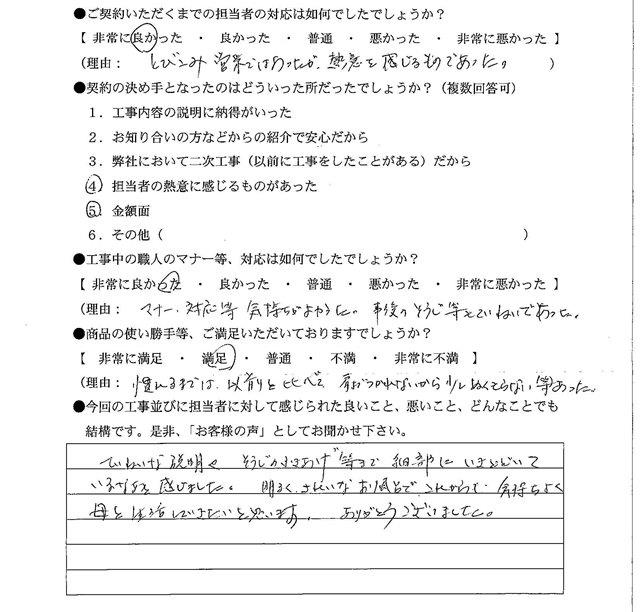 ●ご契約いただくまでの担当者の対応は如何でしたでしょうか？
【 非常に良かった ・ 良かった ・ 普通 ・ 悪かった ・ 非常に悪かった 】
（理由： とびこみ営業ではあったが、熱意を感じるものであった。 ）
●契約の決め手となったのはどういった所だったでしょうか？（複数回答可）
１．工事内容の説明に納得がいった
２．お知り合いの方などからの紹介で安心だから
３．弊社において二次工事（以前に工事をしたことがある）だから
④ 担当者の熱意に感じるものがあった
⑤ 金額面
６．その他（ ）
●工事中の職人のマナー等、対応は如何でしたでしょうか？
【 非常に良かった ・ 良かった ・ 普通 ・ 悪かった ・ 非常に悪かった 】
（理由： マナー、対応等 気持ちがよかった。事後のそうじ等もていねいであった。
●商品の使い勝手等、ご満足いただいておりますでしょうか？
【 非常に満足 ・ 満足 ・ 普通 ・ 不満 ・ 非常に不満 】
（理由： 慣れるまでは、以前と比べて 等あった。
●今回の工事並びに担当者に対して感じられた良いこと、悪いこと、どんなことでも
結構です。是非、「お客様の声」としてお聞かせ下さい。
ていねいな説明、そうじ 等まで 細部に
感じました。明るく、きれいなお風呂で、これからも気持ちよく
母と生活していきたいと思います。 ありがとうございました。